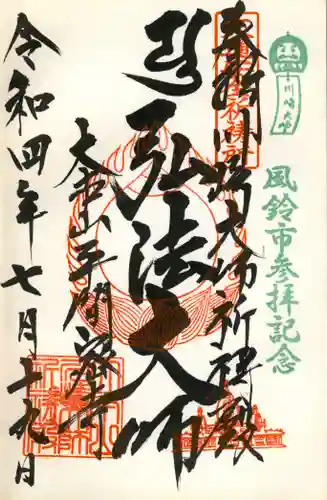 川崎大師
風鈴市参拝記念
奉拝 川崎大師祈祷殿
弘法大師
大本山平間寺
令和四年七月十九日